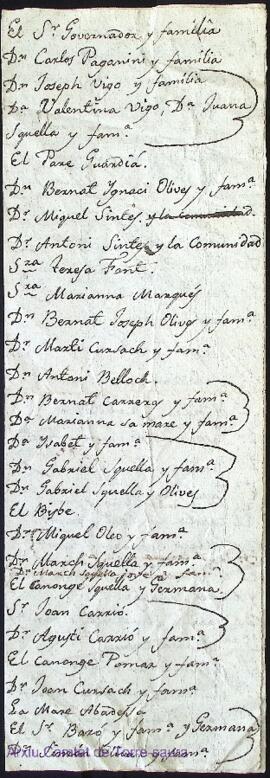 El Sr Governador y familia
Dn Carlos Paganini y familia
Dn Joseph Vigo y familia
Da Valentina Vigo, Da Juana
Squella y fama.
El Pare Guardia.
Dn Bernat Ignaci Olives y fama.
Dr Miquel Sintes y la Comunidad.
Dr Antoni Sintes y la Comunidad
Sra Teresa Font.
Sra Marianna Marqués
Dn Bernat Joseph Olives y fama.
Dr Marti Cursach y fama.
Dn Antoni Belloch.
Dn Bernat Carreras y fama.
Da Marianna sa mare y fama.
Da Isabet y fama.
Dn Gabriel Squella y fama.
Dn Gabriel Squella y Olives
El Bisbe.
Dr Miquel Oleo y fama.
Dn March Squella y fama.
Dn March Squella y fama.
El Canonge Squella y Germana.
Sr Joan Carrió.
Dr Agusti Carrió y fama.
El Canonge Pomar y fama.
Dr Joan Cursach y fama.
La Mare Abadessa
El Sr Baró y fama y Germana
Arxiu Comtat de Torre-saura
y fama.